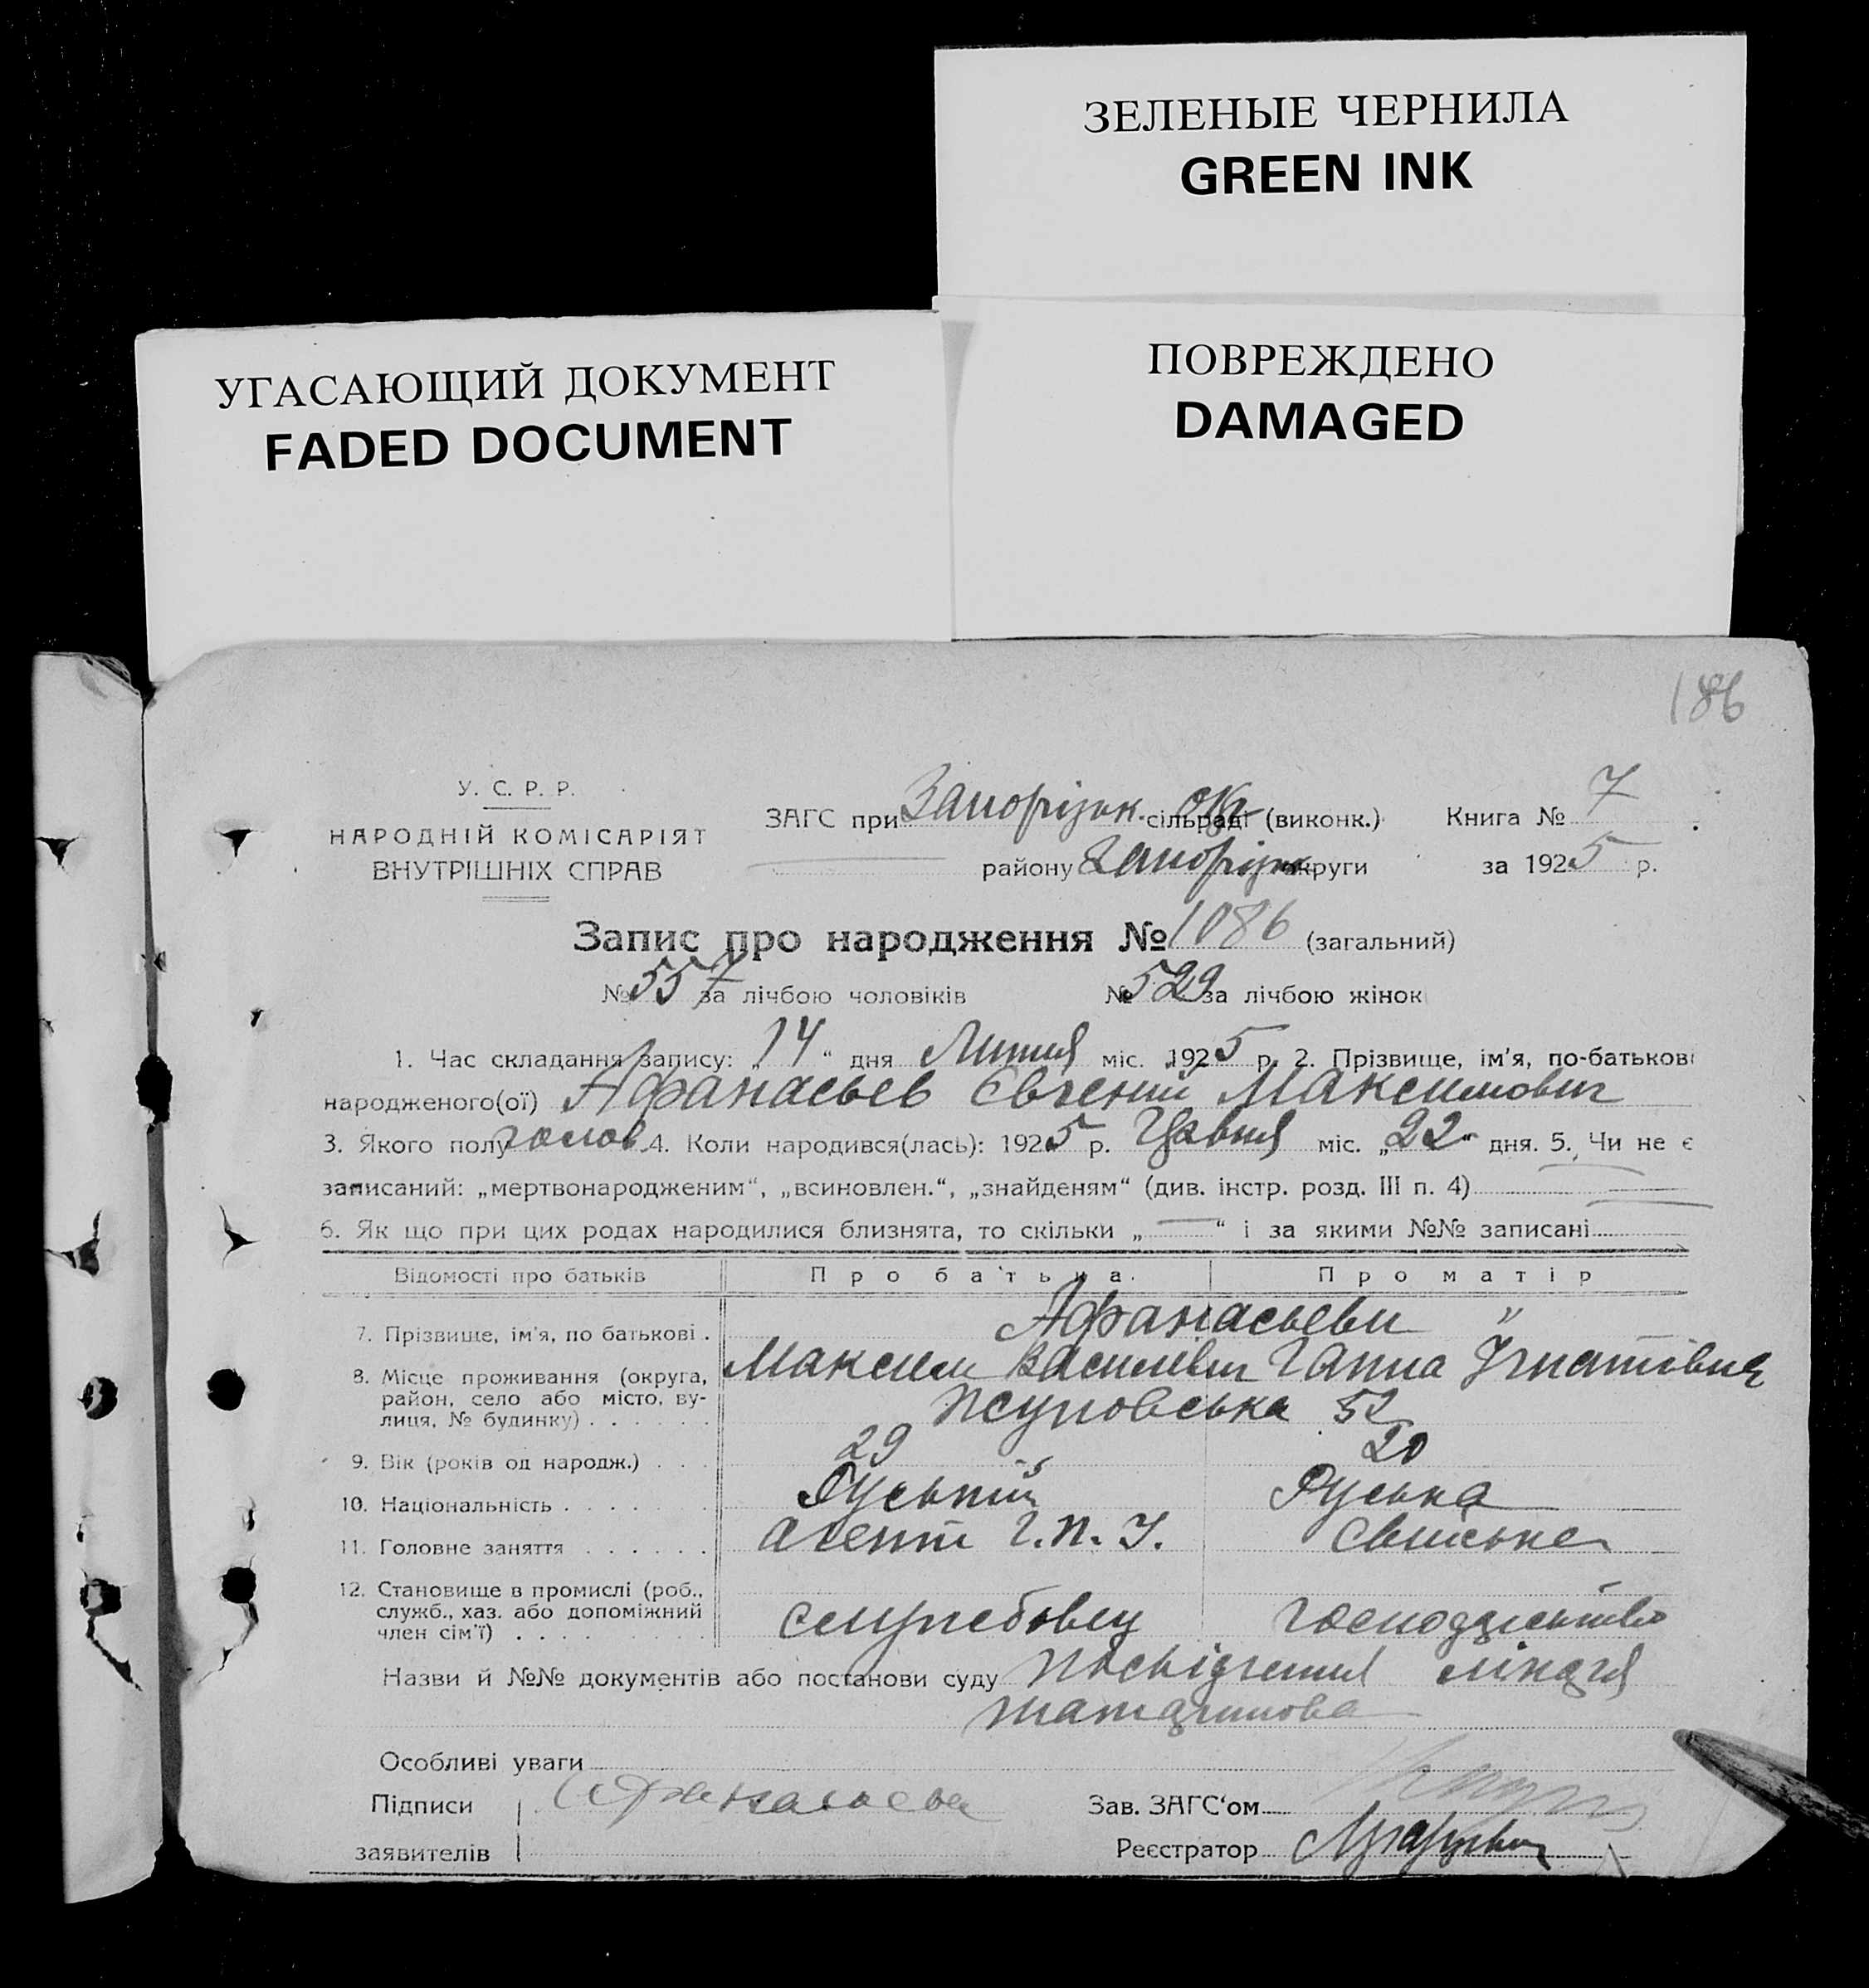 ЗЕЛЕНЫЕ ЧЕРНИЛА
GREEN INK
УГАСАЮЩИЙ ДОКУМЕНТ
FADED DOCUMENT
ПОВРЕЖДЕНО
DAMAGED
186
У. С. Р. Р.
НАРОДНІЙ КОМІСАРІЯТ
ВНУТРІШНІХ СПРАВ
ЗАГС при Запорізьк. сільраді (виконк.) Книга № 7
району Запорізьк округи за 1925 р.
Запис про народження № 1086 (загальний)
№ 557 за лічбою чоловіків № 529 за лічбою жінок
1. Час складання запису: „14“ дня Липня міс. 1925 р. 2. Прізвище, ім'я, по-батькові
народженого(ої) Афанасьев Євгений Максимович
3. Якого полу чолов. 4. Коли народився(лась): 1925 р. Травня міс. „22“ дня. 5. Чи не є
записаний: „мертвонародженим“, „всиновлен.“, „знайденям“ (див. інстр. розд. III п. 4)
6. Як що при цих родах народилися близнята, то скільки „—“ і за якими №№ записані
Відомості про батьків Про батька. Про матір
7. Прізвище, ім'я, по батькові . Афанасьеви "
8. Місце проживання (округа, район, село або місто, вулиця, № будинку) . . . . . . Максим Василівич Ганна Ігнатівна
52
9. Вік (років од народж.) . . . 29 20
10. Національність . . . . . . . Руський Руська
11. Головне заняття . . . . . . агент Г.П.У.
12. Становище в промислі (роб., служб., хаз. або допоміжний член сім'ї) . . . . службовец господарство
Назви й №№ документів або постанови суду Посвідчення
Особливі уваги
Підписи Афанасьева Зав. ЗАГС'ом
заявителів Реєстратор